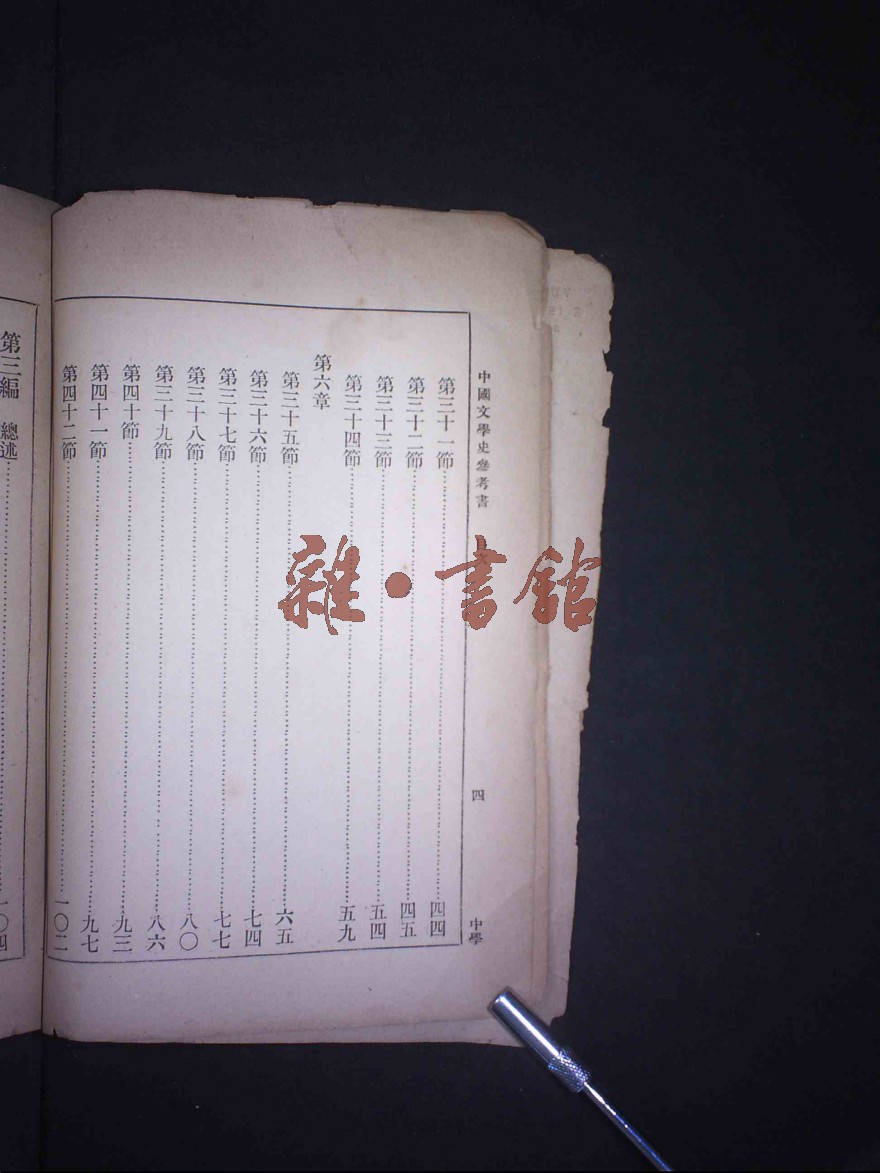 中國文學史參考書 目次 四 中學
第三十一節 四四
第三十二節 四五
第三十三節 五四
第三十四節 五九
第六章
第三十五節 六五
第三十六節 七四
第三十七節 七七
第三十八節 八〇
第三十九節 八六
第四十節 九三
第四十一節 九七
第四十二節 一〇二
第三編 總述 一〇四
雜·書館